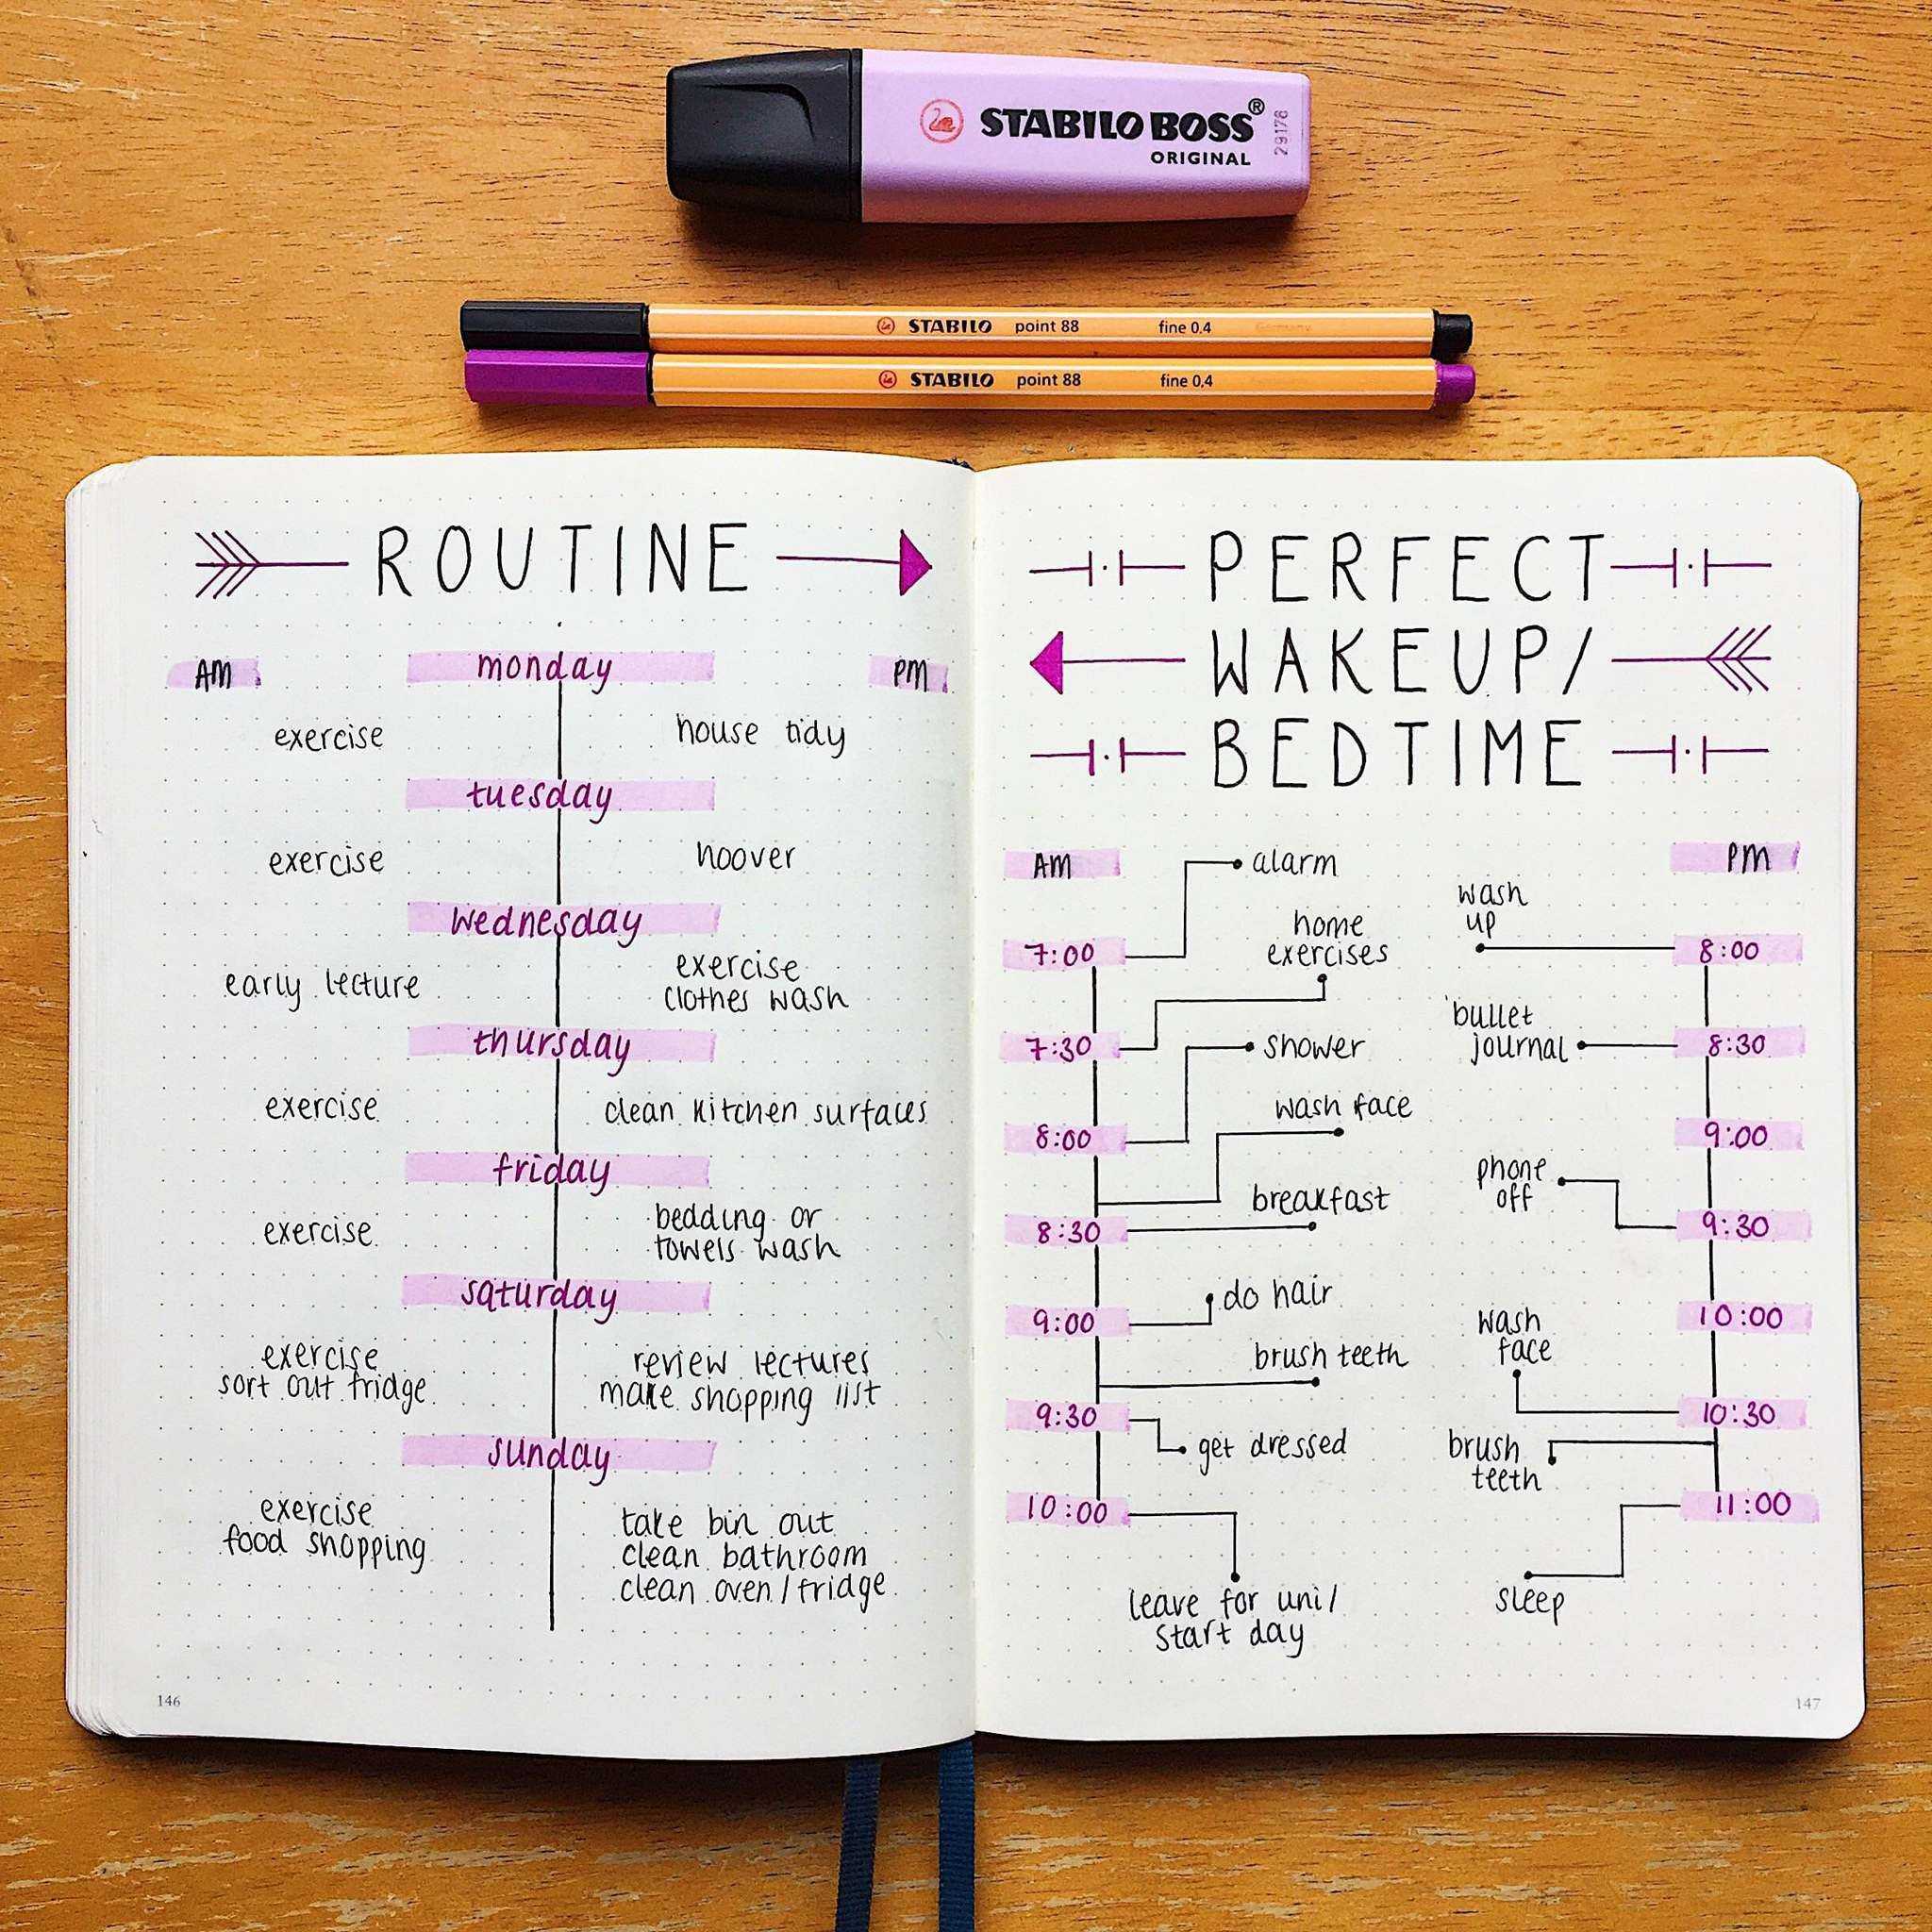 STABILO BOSS®
ORIGINAL
29176
STABILO point 88 fine 0.4 Germany
STABILO point 88 fine 0.4
ROUTINE
AM monday PM
exercise house tidy
tuesday
exercise hoover
wednesday
early lecture
exercise
clothes wash
thursday
exercise clean kitchen surfaces
friday
exercise
bedding or
towels wash
saturday
exercise
sort out fridge
review lectures
make shopping list
sunday
exercise
food shopping
take bin out
clean bathroom
clean oven/fridge
146
PERFECT
WAKEUP/
BEDTIME
AM
alarm
7:00
home
exercises
7:30
shower
8:00
wash face
breakfast
8:30
do hair
9:00
brush teeth
9:30
get dressed
10:00
leave for uni/
start day
PM
wash
up
8:00
bullet
journal
8:30
9:00
phone
off
9:30
10:00
wash
face
10:30
brush
teeth
11:00
sleep
147